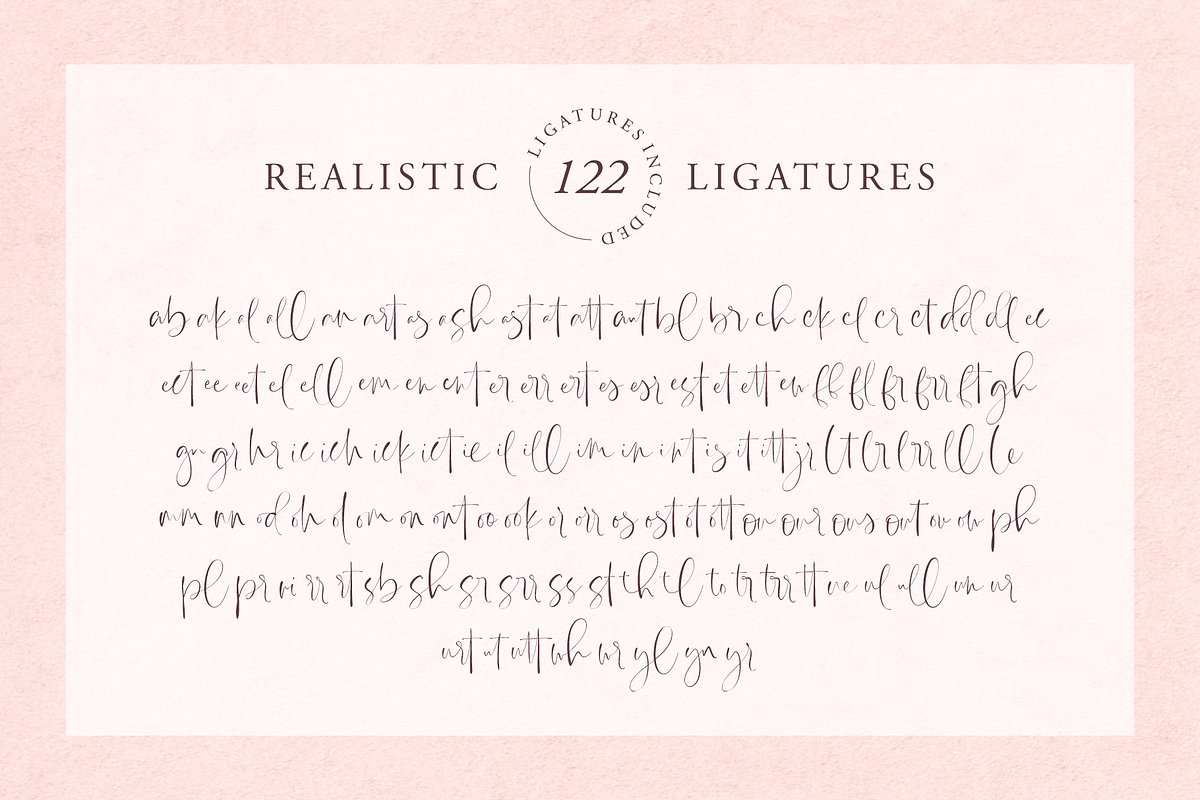 REALISTIC 122 LIGATURES
LIGATURES INCLUDED
ab ak al all an art as ash ast at att aut bl br ch ck cl cr ct dd dl ec
ect ee eet el ell em en ent er err ert es esr est et ett eu ff fl fr frr ft gh
gn gr hr ic ich ick ict ie il ill im in int is it itt jr lt lr lrr ll le
mm nn od oh ol om on ont oo ook or orr os ost ot ott ou our ous out ov ow ph
pl pr ri rr rt sb sh sr srr ss st th tl to tr trr tt ue ul ull un ur
urt ut utt wh wr yl yn yr